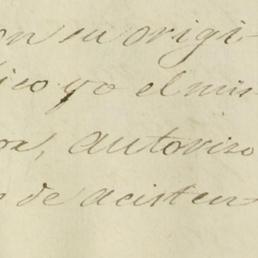 on su origi-
ico yo el mis
or, autoriso
de acisten